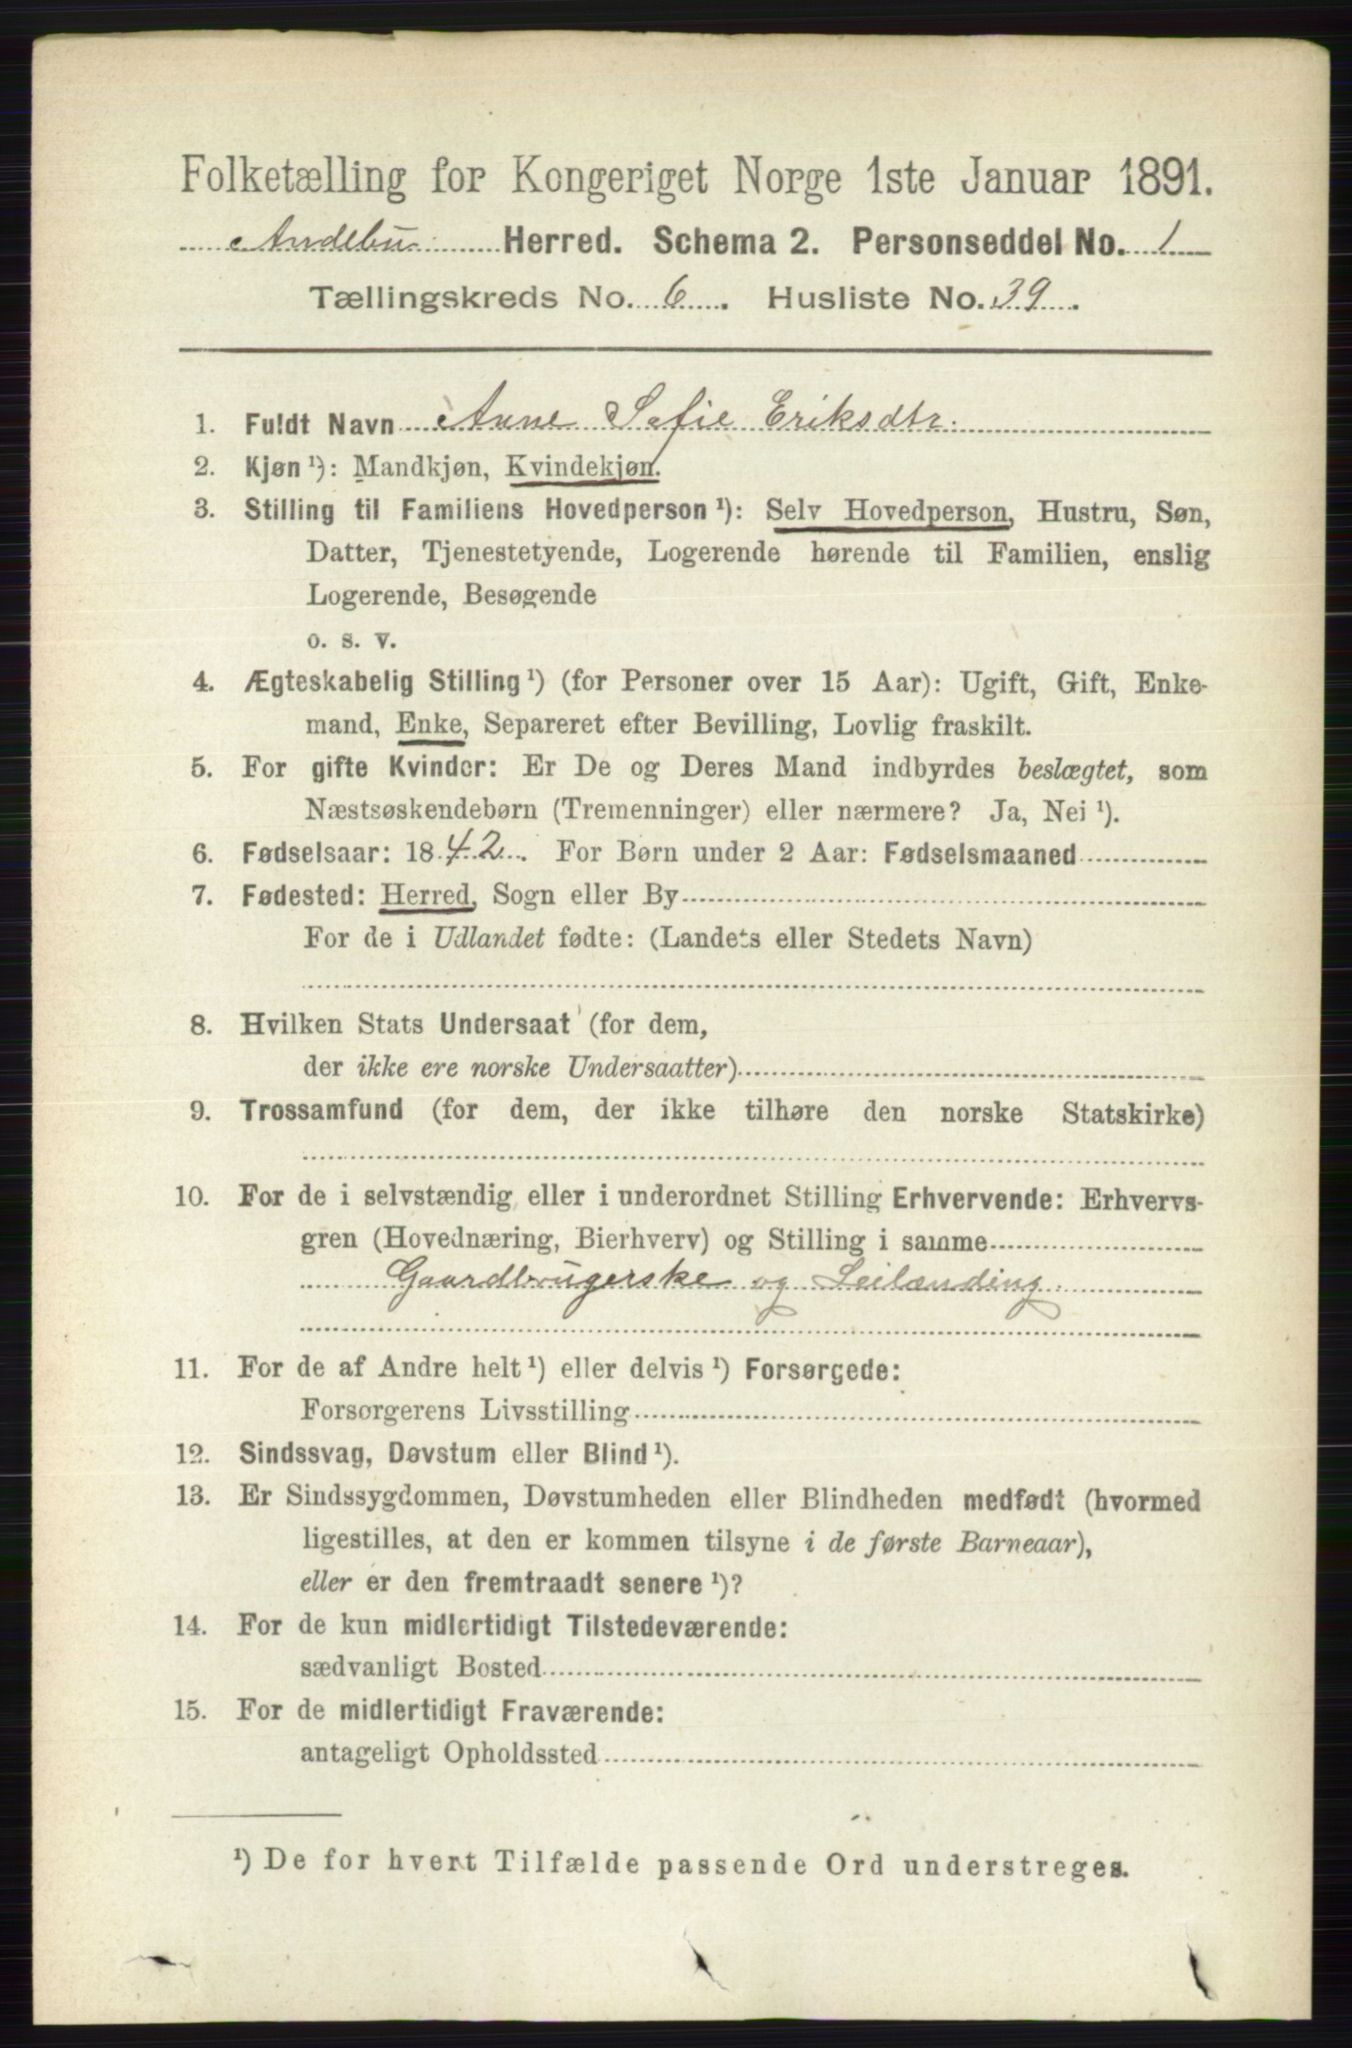 Folketælling for Kongeriget Norge 1ste Januar 1891.
Andebu Herred. Schema 2. Personseddel No. 1
Tællingskreds No. 6. Husliste No. 39.
1. Fuldt Navn Anne Sofie Eriksdtr.
2. Kjøn ¹): Mandkjøn, Kvindekjøn.
3. Stilling til Familiens Hovedperson ¹): Selv Hovedperson, Hustru, Søn,
Datter, Tjenestetyende, Logerende hørende til Familien, enslig
Logerende, Besøgende
o. s. v.
4. Ægteskabelig Stilling ¹) (for Personer over 15 Aar): Ugift, Gift, Enke-
mand, Enke, Separeret efter Bevilling, Lovlig fraskilt.
5. For gifte Kvinder: Er De og Deres Mand indbyrdes beslægtet, som
Næstsøskendebørn (Tremenninger) eller nærmere? Ja, Nei ¹).
6. Fødselsaar: 1842. For Børn under 2 Aar: Fødselsmaaned
7. Fødested: Herred, Sogn eller By
For de i Udlandet fødte: (Landets eller Stedets Navn)
8. Hvilken Stats Undersaat (for dem,
der ikke ere norske Undersaatter)
9. Trossamfund (for dem, der ikke tilhøre den norske Statskirke)
10. For de i selvstændig eller i underordnet Stilling Erhvervende: Erhvervs-
gren (Hovednæring, Bierhverv) og Stilling i samme
Gaardbrugerske og Leilænding
11. For de af Andre helt ¹) eller delvis ¹) Forsørgede:
Forsørgerens Livsstilling
12. Sindssvag, Døvstum eller Blind ¹).
13. Er Sindssygdommen, Døvstumheden eller Blindheden medfødt (hvormed
ligestilles, at den er kommen tilsyne i de første Barneaar),
eller er den fremtraadt senere ¹)?
14. For de kun midlertidigt Tilstedeværende:
sædvanligt Bosted
15. For de midlertidigt Fraværende:
antageligt Opholdssted
¹) De for hvert Tilfælde passende Ord understreges.